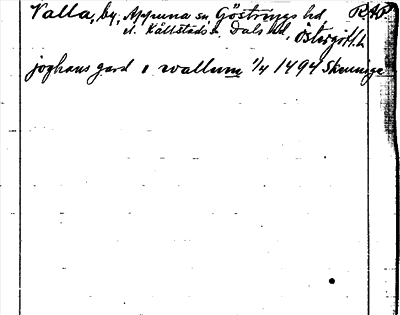 Valla, by, Appuna sn Göstrings hd RAP
el. Källstads sn. Dals hd, Östergötl.
jophans gard i wallum 1/4 1494 Skeninge